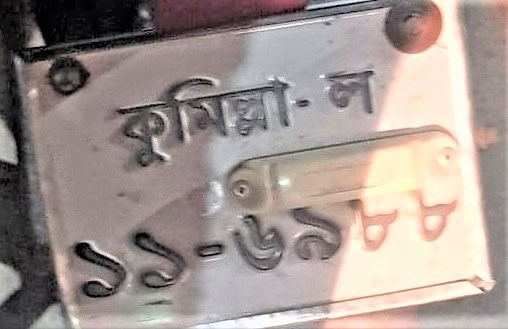 কুমিল্লা-ল
১১-৬৯৮৮